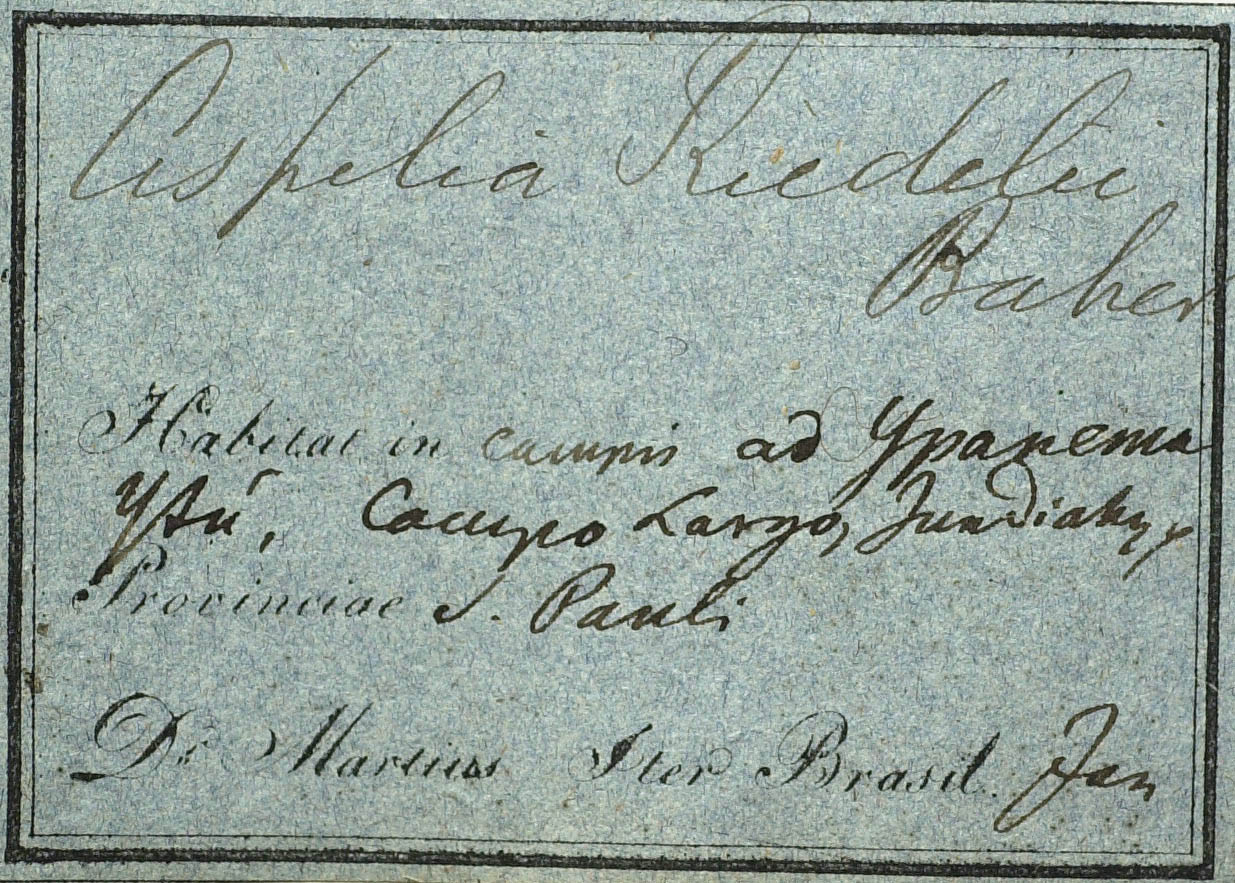 Aspilia Riedelii
Baker
Habitat in campis ad Ypanema
Ytú, Campo Largo, Jundiahy,
Provinciae S. Pauli
Dr. Martius Iter Brasil. Jan